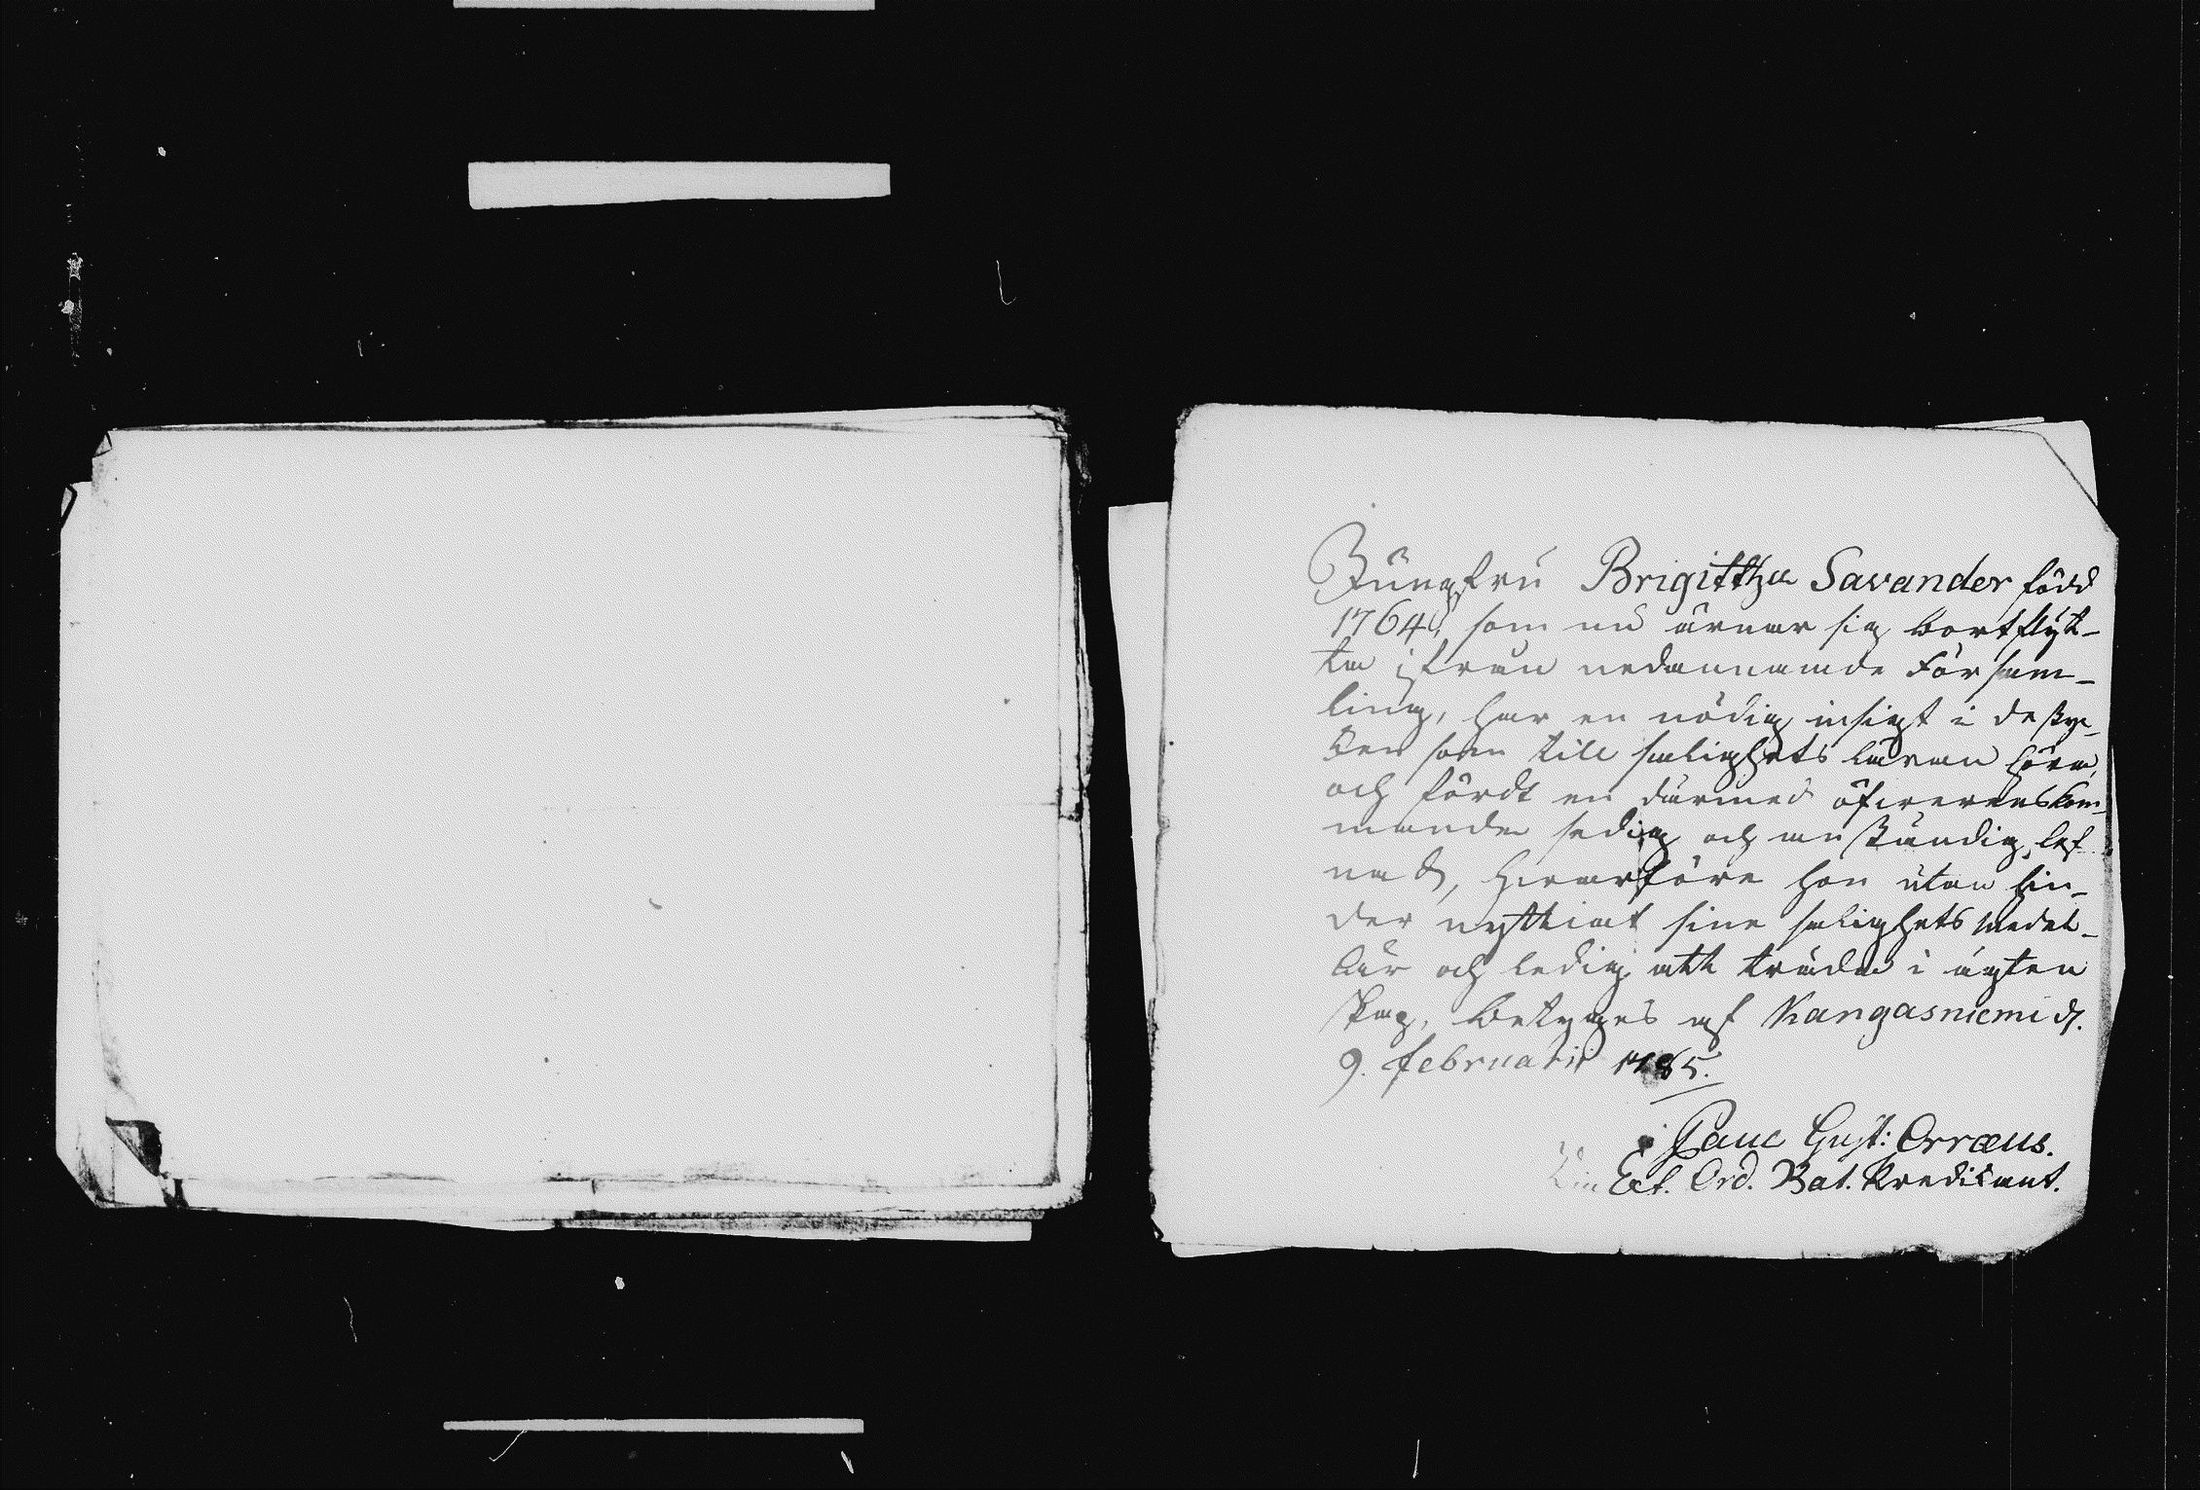 Jungfru Brigittha Savander född
1764, som nu ärnar sig bortflyt-
ta ifrån nedannamde Försam-
ling, har en nödig insigt i de styc-
ken som till salighets läran höra,
och fördt en därmed öfwerenskom-
mande sedig och anständig lef-
nad, hwarföre hon utan hin-
der nyttiat sine salighets medel
är och ledig att träda i ägten
skap, betyges af Kangasniemi d.
9. Februarii 1785.
Paul Gust: Orræus.
Ext. Ord. Bat. Predikant.